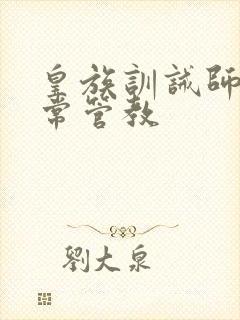 皇族訓誡師
常管教
劉大泉